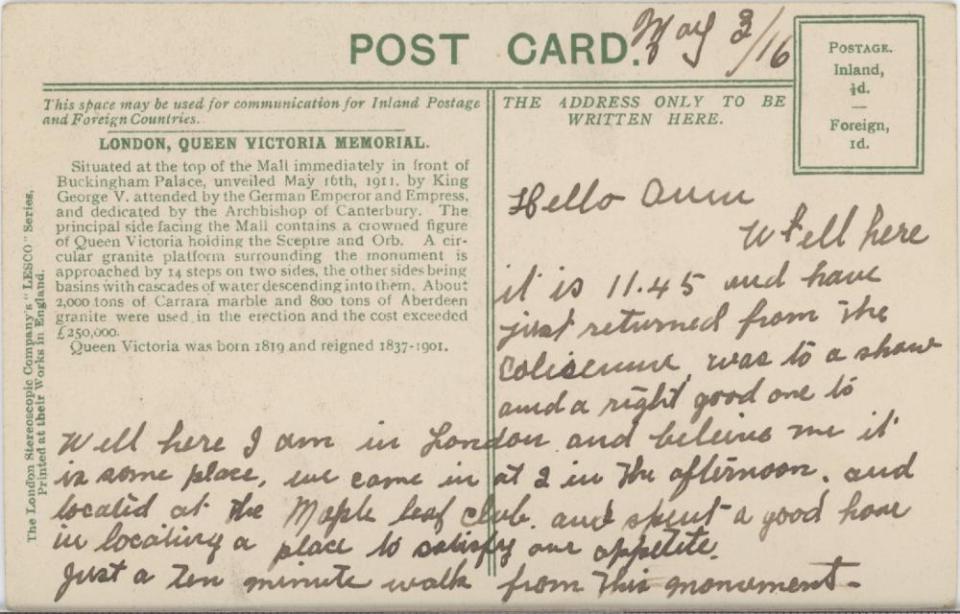 POST CARD.
May 3/16
POSTAGE.
Inland,
½d.
—
Foreign,
1d.
This space may be used for communication for Inland Postage
and Foreign Countries.
LONDON, QUEEN VICTORIA MEMORIAL.
Situated at the top of the Mall immediately in front of
Buckingham Palace, unveiled May 16th, 1911, by King
George V. attended by the German Emperor and Empress,
and dedicated by the Archbishop of Canterbury. The
principal side facing the Mall contains a crowned figure
of Queen Victoria holding the Sceptre and Orb. A cir-
cular granite platform surrounding the monument is
approached by 14 steps on two sides, the other sides being
basins with cascades of water descending into them. About
2,000 tons of Carrara marble and 800 tons of Aberdeen
granite were used in the erection and the cost exceeded
£250,000.
Queen Victoria was born 1819 and reigned 1837-1901.
The London Stereoscopic Company's "LESCO" Series.
Printed at their Works in England.
THE ADDRESS ONLY TO BE
WRITTEN HERE.
Hello
Well here
it is 11.45 and have
just returned from the
Coliseum, was to a show
and a right good one to
Well here I am in London and beleive me it
is some place, we came in at 2 in the afternoon. and
located at the Maple leaf club. and spent a good hour
in locating a place to satisfy our appetite.
Just a ten minute walk from this monument-